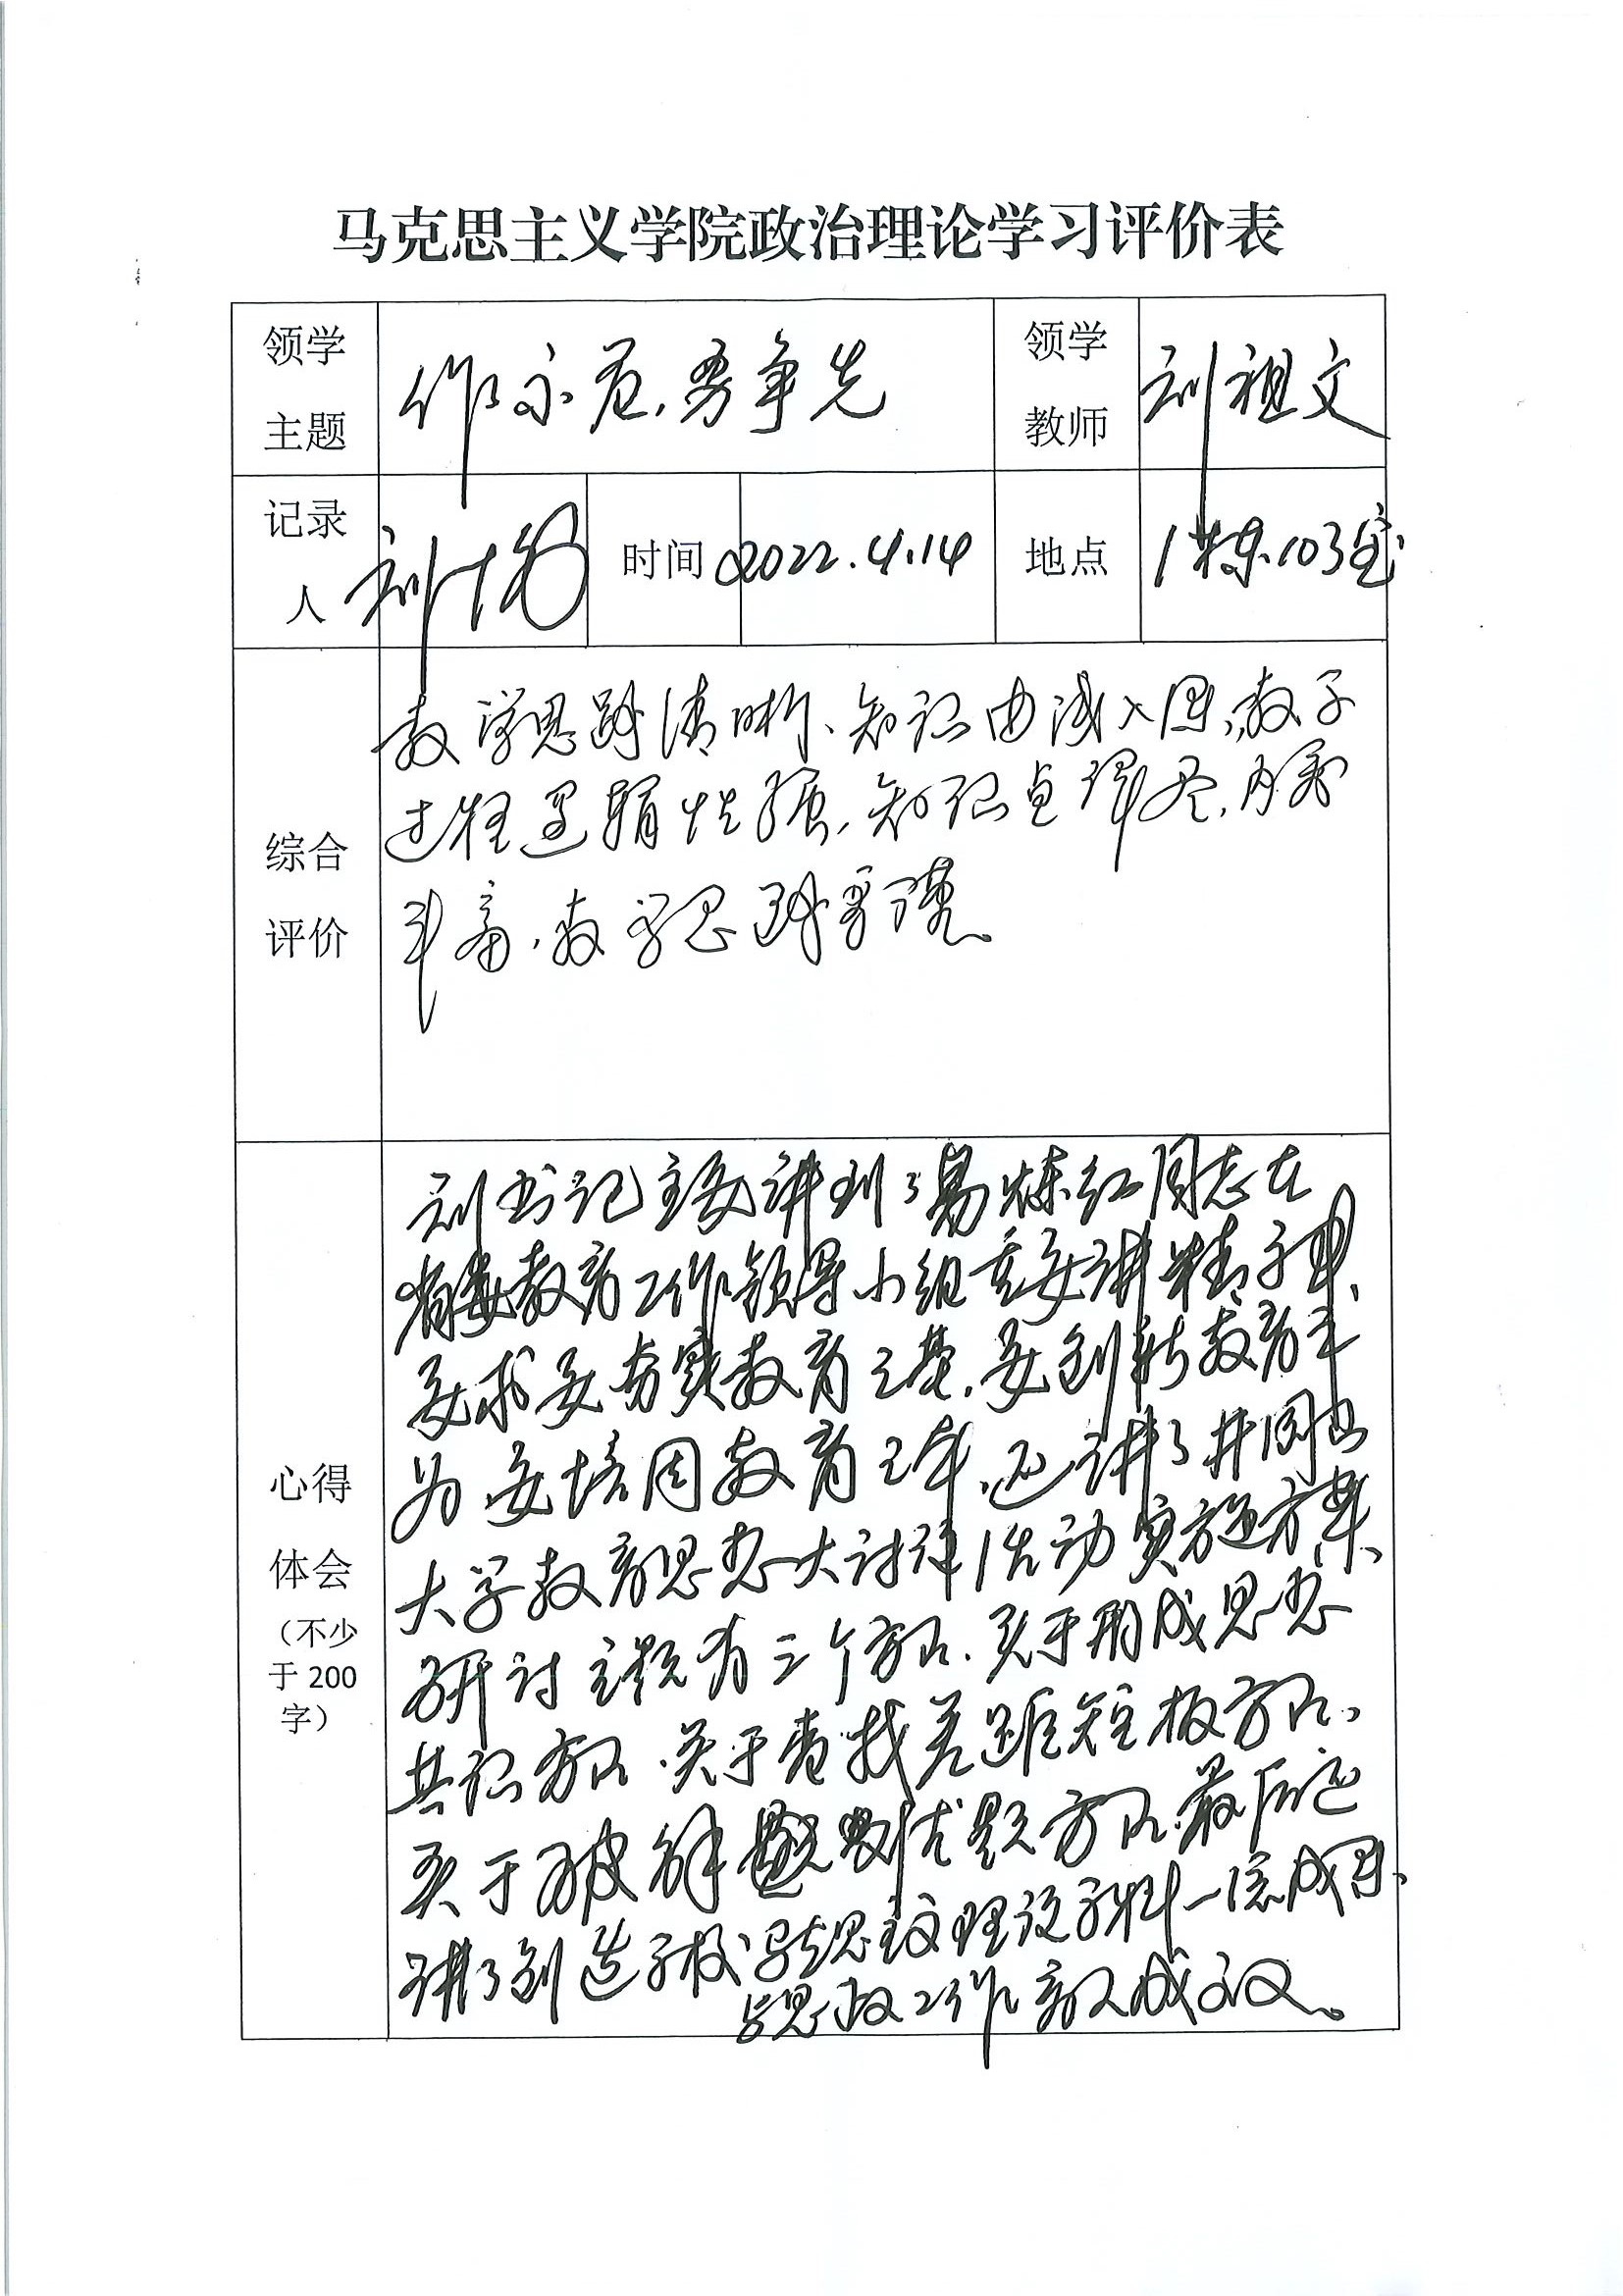 马克思主义学院政治理论学习评价表
领学主题
作示范,勇争先
领学教师
刘祖文
记录人
刘
时间
2022.4.14
地点
1栋103室
综合评价
教学思路清晰、知识由浅入深,教学
过程逻辑性强,知识点详尽,内容
丰富,教学思路严谨。
心得体会
(不少于200字)
刘书记主要讲到了易炼红同志在
省委教育工作领导小组 讲精神、
要求要夯实教育之基,要创新教育
为 要培固教育之本,还讲了井冈山
大学教育思想大讨论活动实施方案、
研讨主题有三个方面.关于形成思想
共识方面.关于查找差距短板方面、
关于破解 难题方面.最后还
讲了创造学校 理论学科一流成果、
思政工作 成